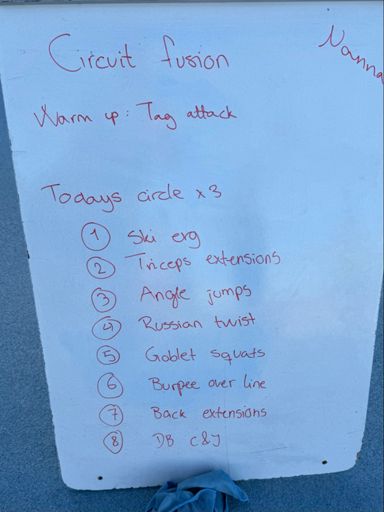 Circuit fusion
Nanna
Warm up: Tag attack
Todays circle x3
1 Ski erg
2 Triceps extensions
3 Angle jumps
4 Russian twist
5 Goblet squats
6 Burpee over line
7 Back extensions
8 DB C&J